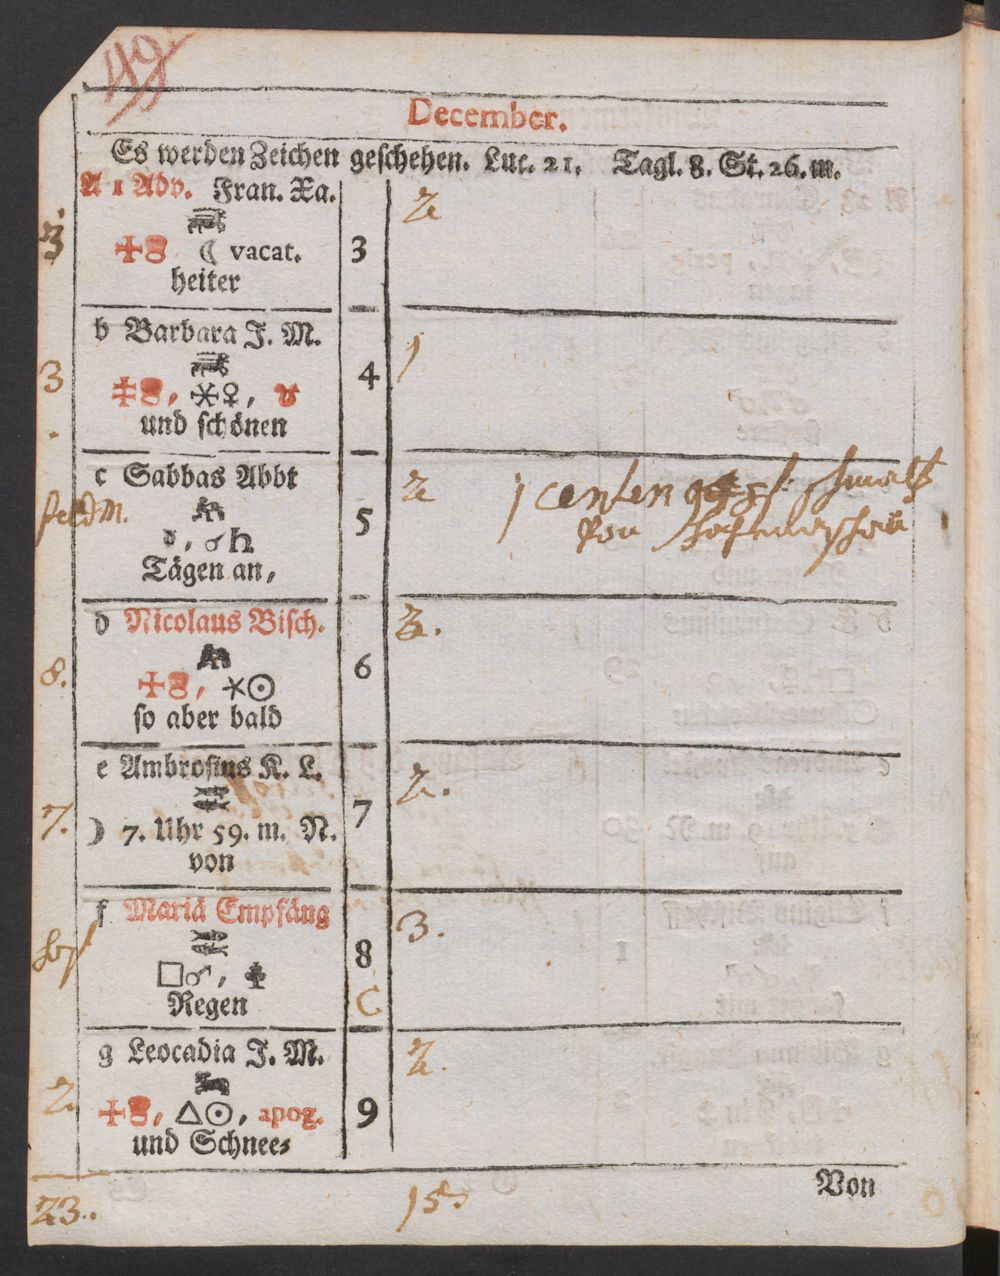 49
December.
Es werden Zeichen geschehen. Luc. 21. Tagl. 8. St. 26. m.
A 1 Adv. Fran. Xa.
3
☾ vacat.
3
2
heiter
b Barbara J. M.
3
⚹♀, ♉
4
1
und schönen
c Sabbas Abbt
feldm.
☌♄
5
2
1 centen
Von
Tägen an,
d Nicolaus Bisch.
8.
⚹☉
6
3.
so aber bald
e Ambrosius K. L.
7.
☽ 7. Uhr 59. m. N.
7
2.
von
f Mariä Empfäng
□♂,
8
3.
Regen
C
g Leocadia J. M.
2.
△☉, apog.
9
2.
und Schnee⸗
Von
23..
15